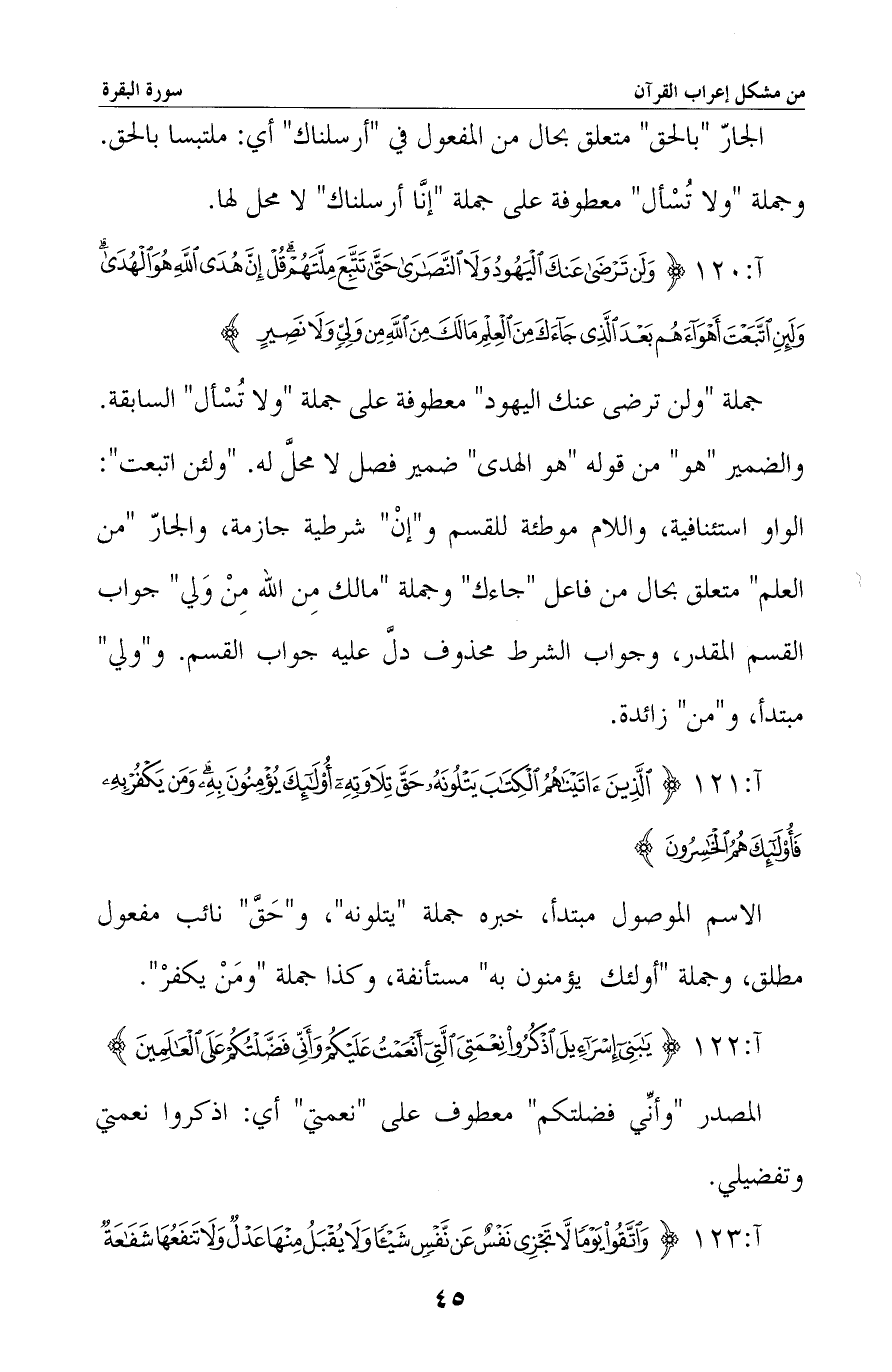 من مشكل إعراب القرآن سورة البقرة
الجارّ "بالحق" متعلق بحال من المفعول في "أرسلناك" أي: ملتبسا بالحق.
وجملة "ولا تُسْأل" معطوفة على جملة "إنَّا أرسلناك" لا محل لها.
آ:١٢٠ ﴿ وَلَن تَرْضَىٰ عَنكَ ٱلْيَهُودُ وَلَا ٱلنَّصَٰرَىٰ حَتَّىٰ تَتَّبِعَ مِلَّتَهُمْ ۗ قُلْ إِنَّ هُدَى ٱللَّهِ هُوَ ٱلْهُدَىٰ ۗ
وَلَئِنِ ٱتَّبَعْتَ أَهْوَآءَهُم بَعْدَ ٱلَّذِى جَآءَكَ مِنَ ٱلْعِلْمِ مَالَكَ مِنَ ٱللَّهِ مِن وَلِىٍّ وَلَا نَصِيرٍ ﴾
جملة "ولن ترضى عنك اليهود" معطوفة على جملة "ولا تُسْأل" السابقة.
والضمير "هو" من قوله "هو الهدى" ضمير فصل لا محلَّ له. "ولئن اتبعت":
الواو استئنافية، واللام موطئة للقسم و"إنْ" شرطية جازمة، والجارّ "من
العلم" متعلق بحال من فاعل "جاءك" وجملة "مالك مِن الله مِنْ وَلي" جواب
القسم المقدر، وجواب الشرط محذوف دلَّ عليه جواب القسم. و"ولي"
مبتدأ، و"من" زائدة.
آ:١٢١ ﴿ ٱلَّذِينَ ءَاتَيْنَٰهُمُ ٱلْكِتَٰبَ يَتْلُونَهُۥ حَقَّ تِلَاوَتِهِۦٓ أُو۟لَٰٓئِكَ يُؤْمِنُونَ بِهِۦ ۗ وَمَن يَكْفُرْ بِهِۦ
فَأُو۟لَٰٓئِكَ هُمُ ٱلْخَٰسِرُونَ ﴾
الاسم الموصول مبتدأ، خبره جملة "يتلونه"، و"حَقَّ" نائب مفعول
مطلق، وجملة "أولئك يؤمنون به" مستأنفة، وكذا جملة "ومَنْ يكفرْ".
آ:١٢٢ ﴿ يَٰبَنِىٓ إِسْرَٰٓءِيلَ ٱذْكُرُوا۟ نِعْمَتِىَ ٱلَّتِىٓ أَنْعَمْتُ عَلَيْكُمْ وَأَنِّى فَضَّلْتُكُمْ عَلَى ٱلْعَٰلَمِينَ ﴾
المصدر "وأنِّي فضلتكم" معطوف على "نعمتي" أي: اذكروا نعمتي
وتفضيلي.
آ:١٢٣ ﴿ وَٱتَّقُوا۟ يَوْمًا لَّا تَجْزِى نَفْسٌ عَن نَّفْسٍ شَيْـًٔا وَلَا يُقْبَلُ مِنْهَا عَدْلٌ وَلَا تَنفَعُهَا شَفَٰعَةٌ
٤٥